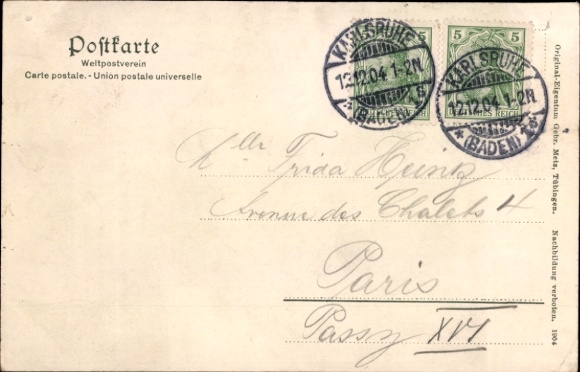 Postkarte
Weltpostverein
Carte postale. - Union postale universelle
5
5
DEUTSCHES REICH
KARLSRUHE
12.12.04 1-2N
*(BADEN) 1 *
KARLSRUHE
12.12.04 1-2N
*(BADEN)
Mlle Frida Heintz
Avenue des Chalets 4
Paris
Passy XVI
Original-Eigentum Gebr. Metz, Tübingen. Nachbildung verboten. 1904